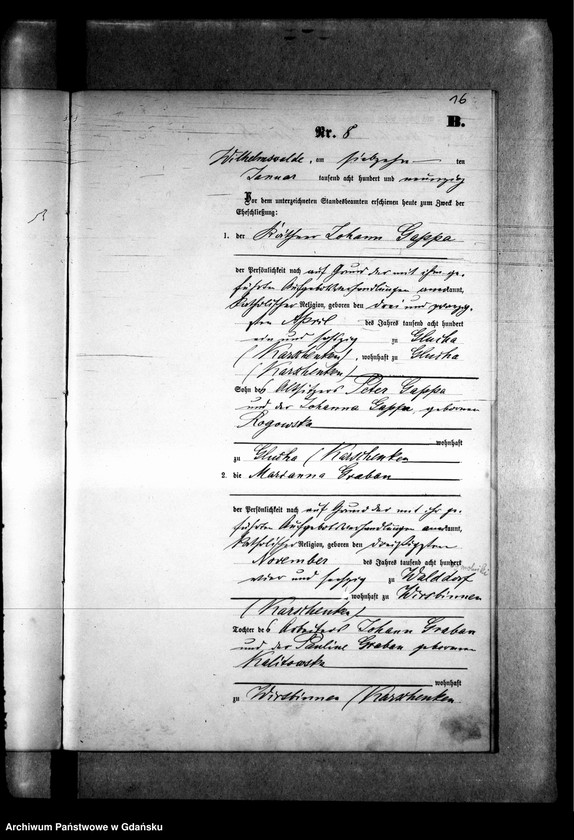 16
B.
Nr. 8
Wilhelmswalde, am siebzehn ten
Januar tausend acht hundert und neunzig
Vor dem unterzeichneten Standesbeamten erschienen heute zum Zweck der
Eheschließung:
1. der Käthner Johann Gappa
der Persönlichkeit nach auf Grund der mit ihm ge-
führten Aufgebotsverhandlungen anerkannt,
katholischer Religion, geboren den drei und zwanzig-
sten April des Jahres tausend acht hundert
ein und sechzig zu Glucha
(Karschenken), wohnhaft zu Glucha
(Karschenken)
Sohn des Altsitzers Peter Gappa
und der Johanna Gappa geborenen
Rogowska
wohnhaft
zu Glucha (Karschenken
2. die Marianna Graban
der Persönlichkeit nach auf Grund der mit ihr ge-
führten Aufgebotsverhandlungen anerkannt,
katholischer Religion, geboren den dreißigsten
November des Jahres tausend acht hundert
vier und sechzig zu Walddorf
wohnhaft zu Wirsbinnen
(Karschenken)
Tochter des Arbeiters Johann Graban
und der Pauline Graban geborenen
Kalitowska
wohnhaft
zu Wirsbinnen (Karschenken
Archiwum Państwowe w Gdańsku